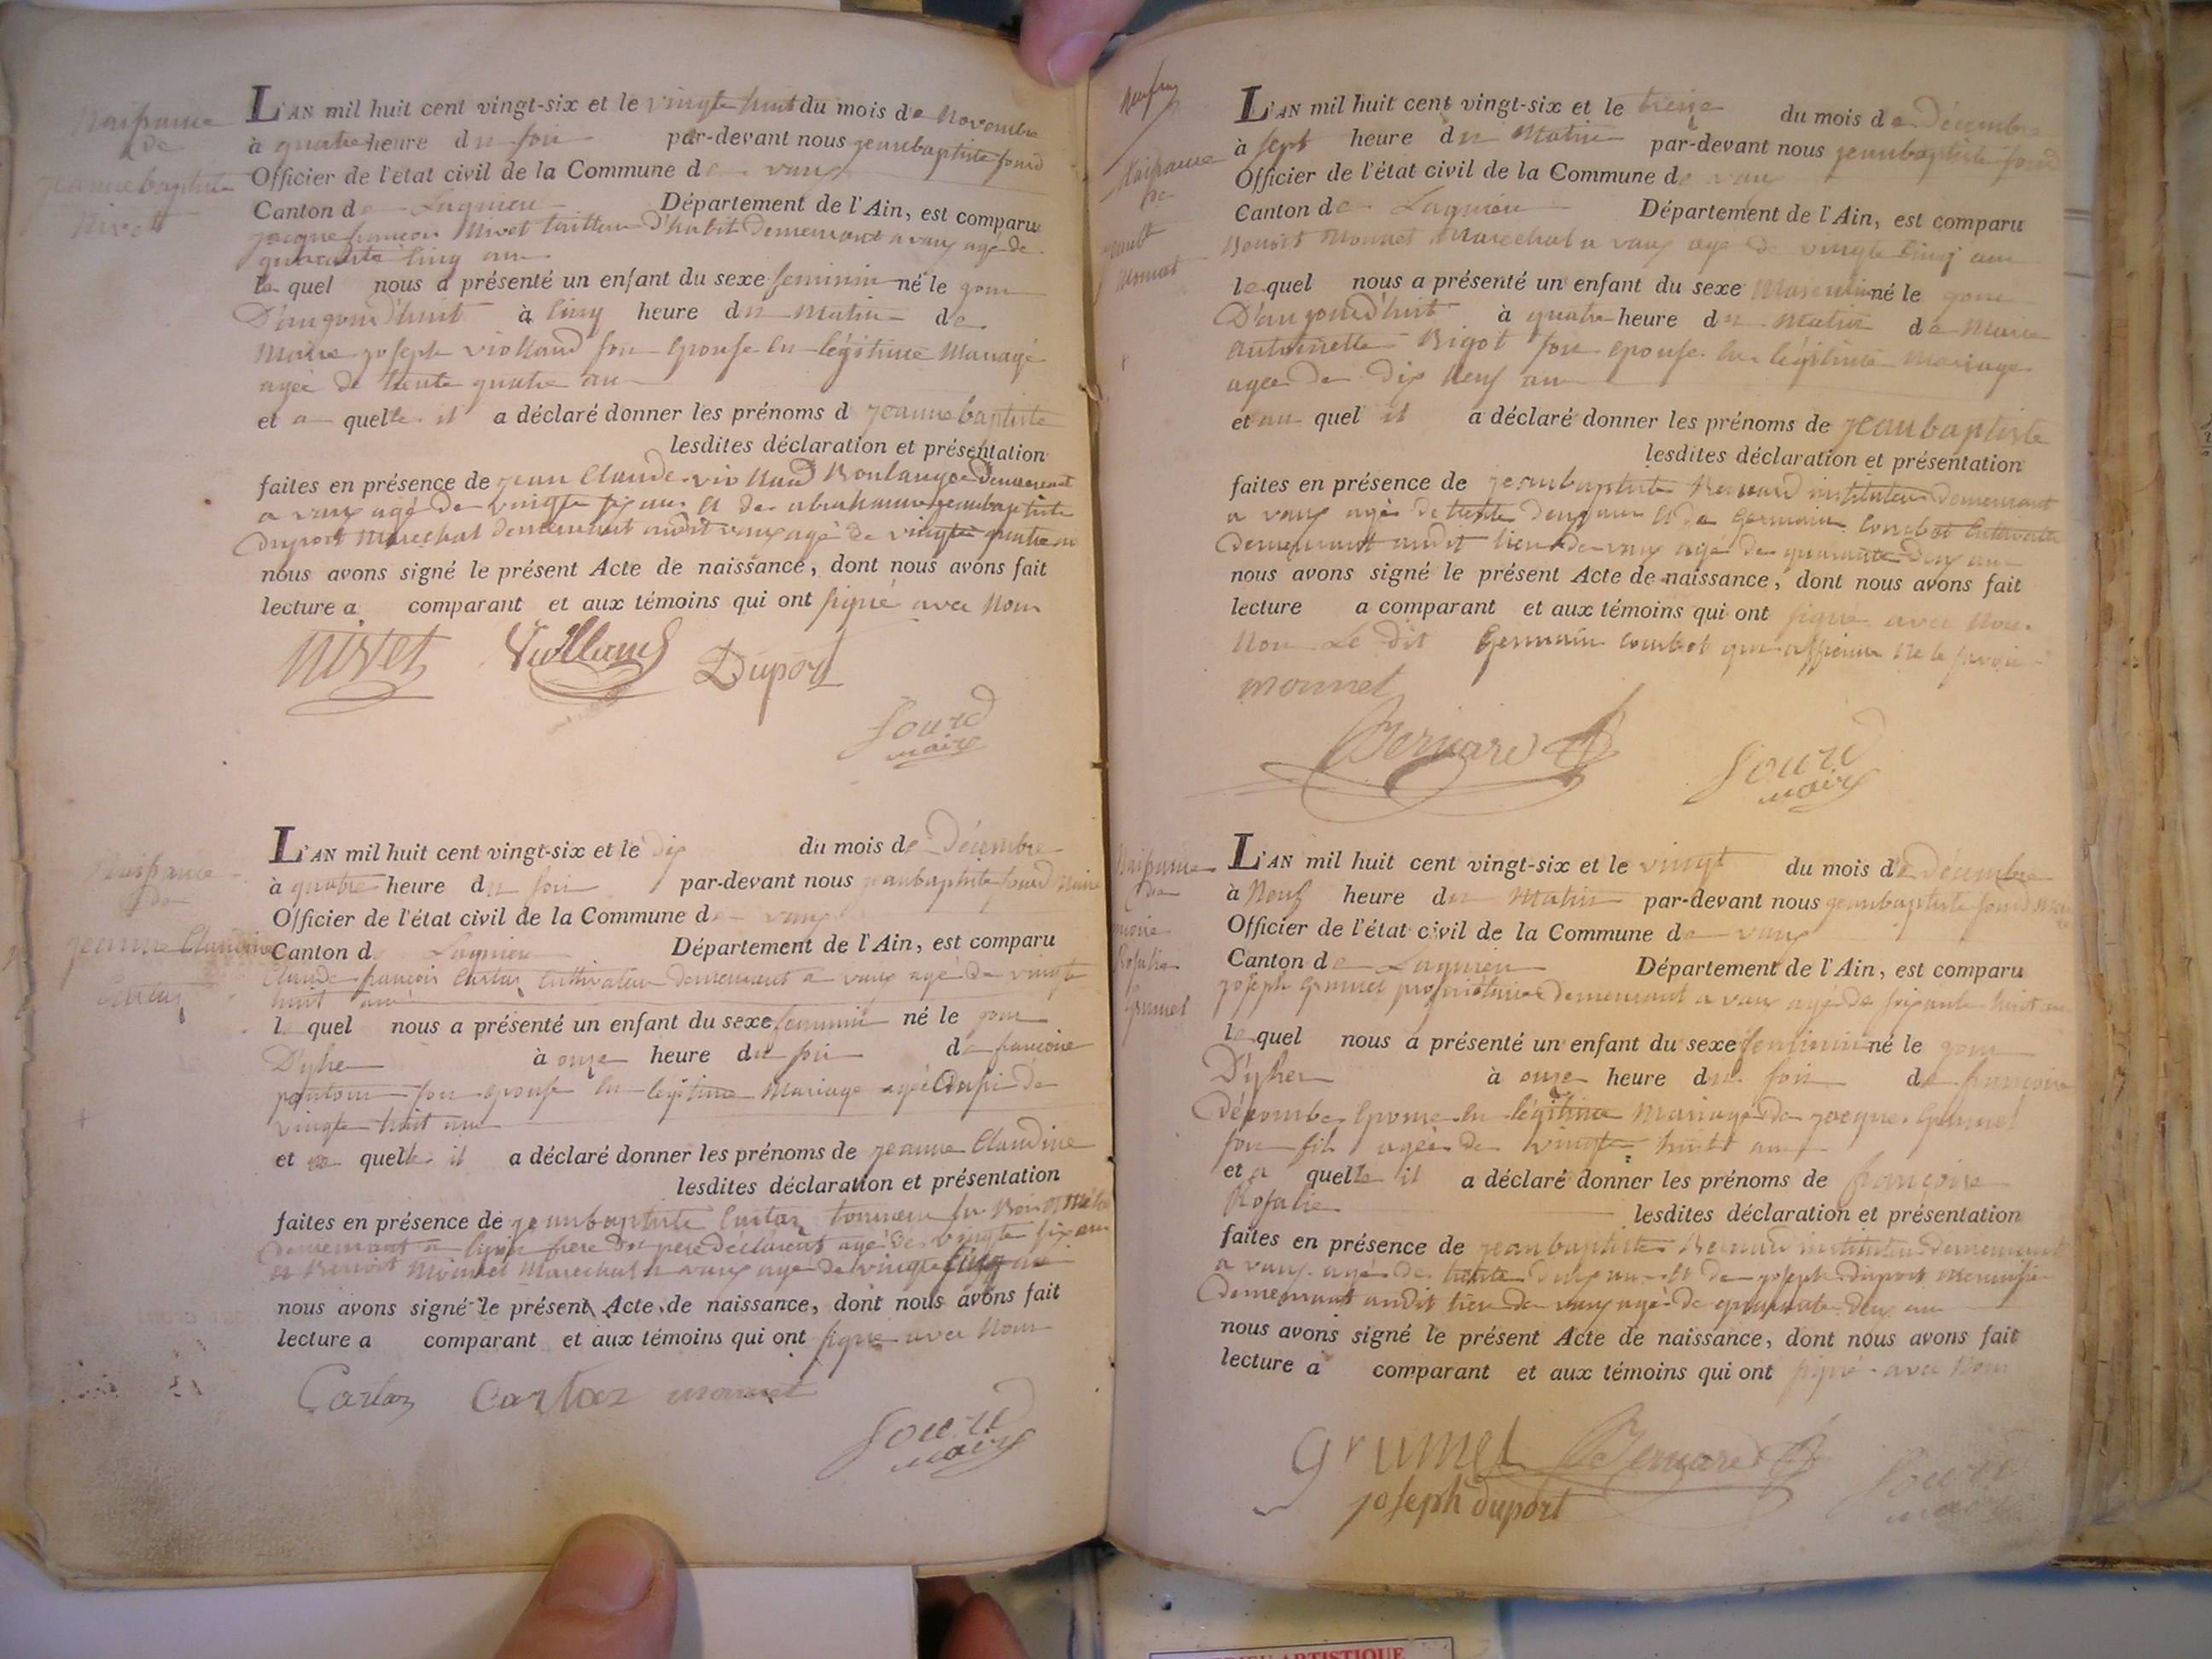 Naissance
de
jeanne baptiste
Nivet
L'AN mil huit cent vingt-six et le vingte huit du mois de Novembre
à quatre heure du soir par-devant nous jeanbaptiste sourd
Officier de l'état civil de la Commune de vaux
Canton de Lagnieu Département de l'Ain, est comparu
jacque françois Nivet tailleur d'habit demeurant a vaux agé de
quarante cinq an
le quel nous a présenté un enfant du sexe feminin né le jour
D'aujourd'huit à cinq heure du matin de
Marie joseph violland son epouse en légitime Mariage
agée de trente quatre an
et a quelle il a déclaré donner les prénoms d jeanne baptiste
lesdites déclaration et présentation
faites en présence de jean Claude violland Boulanger Demeurant
a vaux agé de vingte six ans et de abraham jeanbaptiste
Duport Marechal demeurant audit vaux agé de vingte quatre an
nous avons signé le présent Acte de naissance, dont nous avons fait
lecture a comparant et aux témoins qui ont signé avec Nous
NIVET Violland Duport
Sourd
maire
Naissance
de
jeanne Claudine
Cartaz
L'AN mil huit cent vingt-six et le dix du mois de Décembre
à quatre heure du soir par-devant nous jeanbaptiste sourd Maire
Officier de l'état civil de la Commune de vaux
Canton d Lagnieu Département de l'Ain, est comparu
Claude françois Cartaz Cultivateur demeurant a vaux agé de vingte
huit ans
l quel nous a présenté un enfant du sexe feminin né le jour
D'yher à onze heure du soir de françoise
son epouse en légitime Mariage agée de
vingte huit ans
et a quelle il a déclaré donner les prénoms de jeanne Claudine
lesdites déclaration et présentation
faites en présence de jeanbaptiste Cartaz tourneur sur Bois
demeurant a frere du pere déclarant agé de vingte six ans
et Benoit Monnet Marechal a vaux agé de vingte cinq an
nous avons signé le présent Acte de naissance, dont nous avons fait
lecture a comparant et aux témoins qui ont signé avec Nous
Cartaz Cartaz monnet
Sourd
maire
Naissance
de
Monnet
L'AN mil huit cent vingt-six et le treize du mois de Décembre
à sept heure du Matin par-devant nous jeanbaptiste sourd
Officier de l'état civil de la Commune de vaux
Canton de Lagnieu Département de l'Ain, est comparu
Benoit Monnet Marechal a vaux agé de vingte cinq ans
le quel nous a présenté un enfant du sexe Masculin né le jour
D'aujourd'huit à quatre heure du Matin de Marie
antoinette Bigot son epouse en légitime Mariage
agée de dix neuf an
et au quel il a déclaré donner les prénoms de jeanbaptiste
lesdites déclaration et présentation
faites en présence de jeanbaptiste Bernard instituteur demeurant
a vaux agé de trente deux ans et de Germain Combet Cultivateur
demeurant audit lieu de vaux agé de quarante deux an
nous avons signé le présent Acte de naissance, dont nous avons fait
lecture a comparant et aux témoins qui ont signé avec Nous
Non Le dit Germain Combet qui affirme ne le savoir
monnet
Bernard
Sourd
maire
Naissance
de
Rosalie
Grumet
L'AN mil huit cent vingt-six et le vingt du mois de Décembre
à Neuf heure du Matin par-devant nous jeanbaptiste sourd
Officier de l'état civil de la Commune de vaux
Canton de Lagnieu Département de l'Ain, est comparu
joseph Grumet proprietaire demeurant a vaux agé de soixante huit an
le quel nous a présenté un enfant du sexe feminin né le jour
D'yher à onze heure du soir de françoise
Décombe Epouse en légitime Mariage de jacque Grumet
son fils agée de vingte huitt ans
et a quelle il a déclaré donner les prénoms de françoise
Rosalie lesdites déclaration et présentation
faites en présence de jeanbaptiste Bernard instituteur demeurant
a vaux agé de trente deux ans et de joseph duport menuisie
demeurant audit lieu de vaux agé de quarante deux an
nous avons signé le présent Acte de naissance, dont nous avons fait
lecture a comparant et aux témoins qui ont signé avec Nous
Grumet Bernard
joseph duport
Sourd
maire
ARTISTIQUE